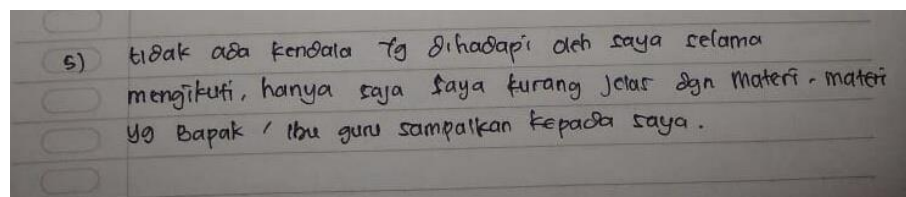 5) tidak ada kendala yg dihadapi oleh saya selama
mengikuti, hanya saja saya kurang jelas dgn materi-materi
yg Bapak / Ibu guru sampaikan kepada saya.